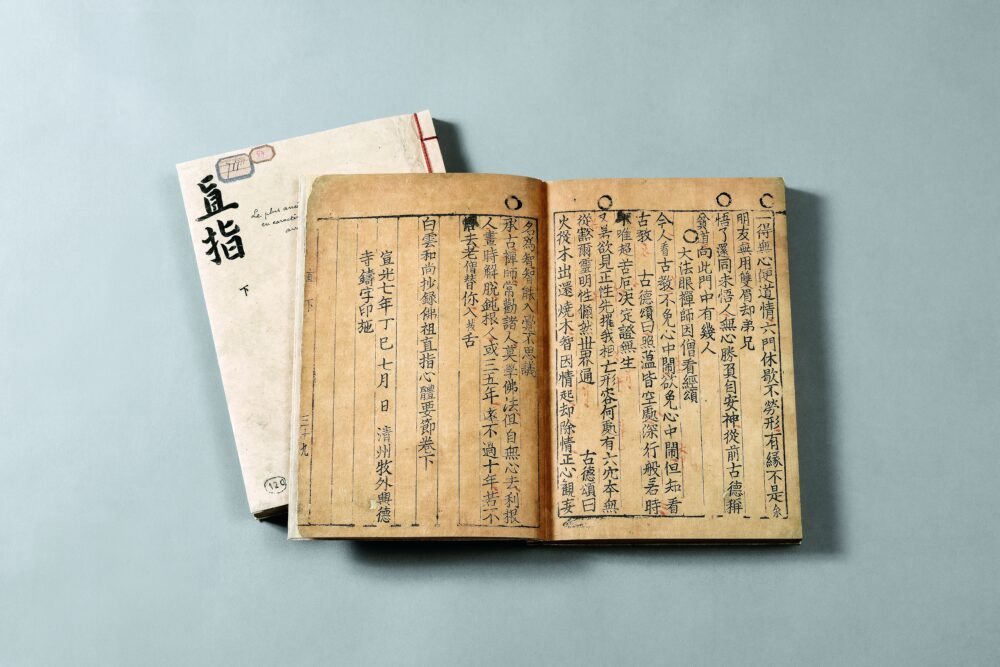 一得無心便道情六門休歇不勞形有緣不是余
朋友無用雙眉却弟兄
悟了還同未悟人無心勝負自安神從前古德稱
貧道向此門中有幾人
大法眼禪師因僧看經頌
今人看古教不免心中鬧欲免心中鬧但知看
古教 古德頌曰照蘊皆空處深行般若時
雖超苦厄決定證無生
又若欲見正性先摧我相亡形容何處有六穴本無
從豁爾靈明性儼然世界通 古德頌曰
火從木出還燒木智因情起却除情正心觀妄
名為智智能入毫不思議
承古禪師常勸諸人莫學佛法但自無心去利根
人畫時解脫鈍根人或三五年遠不過十年若不
去老僧替你入拔舌
白雲和尚抄錄佛祖直指心體要節卷下
宣光七年丁巳七月 日 清州牧外興德
寺鑄字印施
下
三十九
直指
下
Le plus anci
en caractè